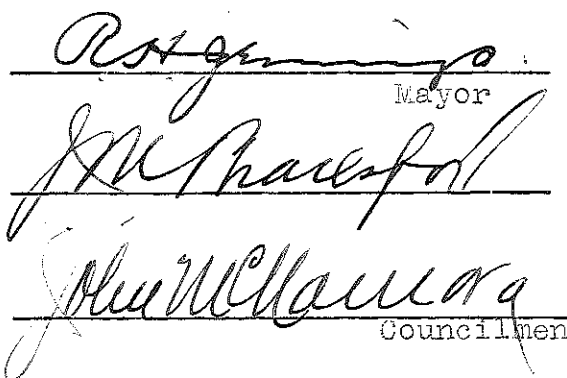 R H Jennings
Mayor
J M Brailsford
John McNamara
Councilmen